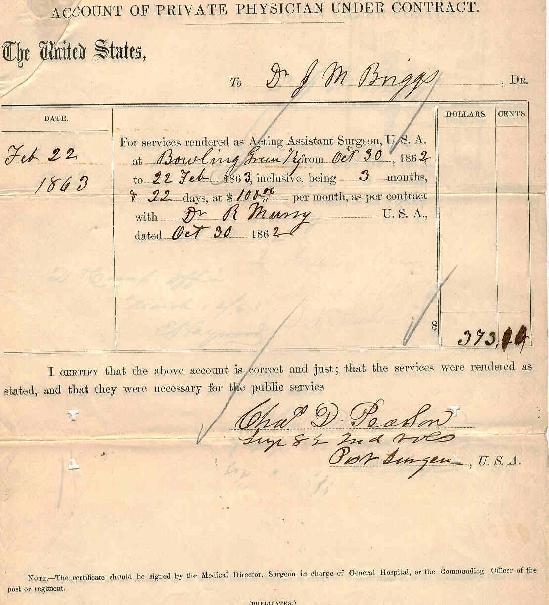 ACCOUNT OF PRIVATE PHYSICIAN UNDER CONTRACT.
The United States,
To Dr J M Briggs, DR.
DATE. DOLLARS. CENTS.
For services rendered as Acting Assistant Surgeon, U. S. A.
Feb 22 at Bowling Green Ky from Oct 30, 1862
1863 to 22 Feb 1863, inclusive, being 3 months,
& 22 days, at $100.00 per month, as per contract
with Dr R Murry U. S. A.,
dated Oct 30 1862
373
I CERTIFY that the above account is correct and just; that the services were rendered as
stated, and that they were necessary for the public service
Chas D. Pearson
Surg 82 Ind vols
Post Surgeon, U. S. A.
NOTE.—The certificate should be signed by the Medical Director, Surgeon in charge of General Hospital, or the Commanding Officer of the
post or regiment.
(DUPLICATES.)